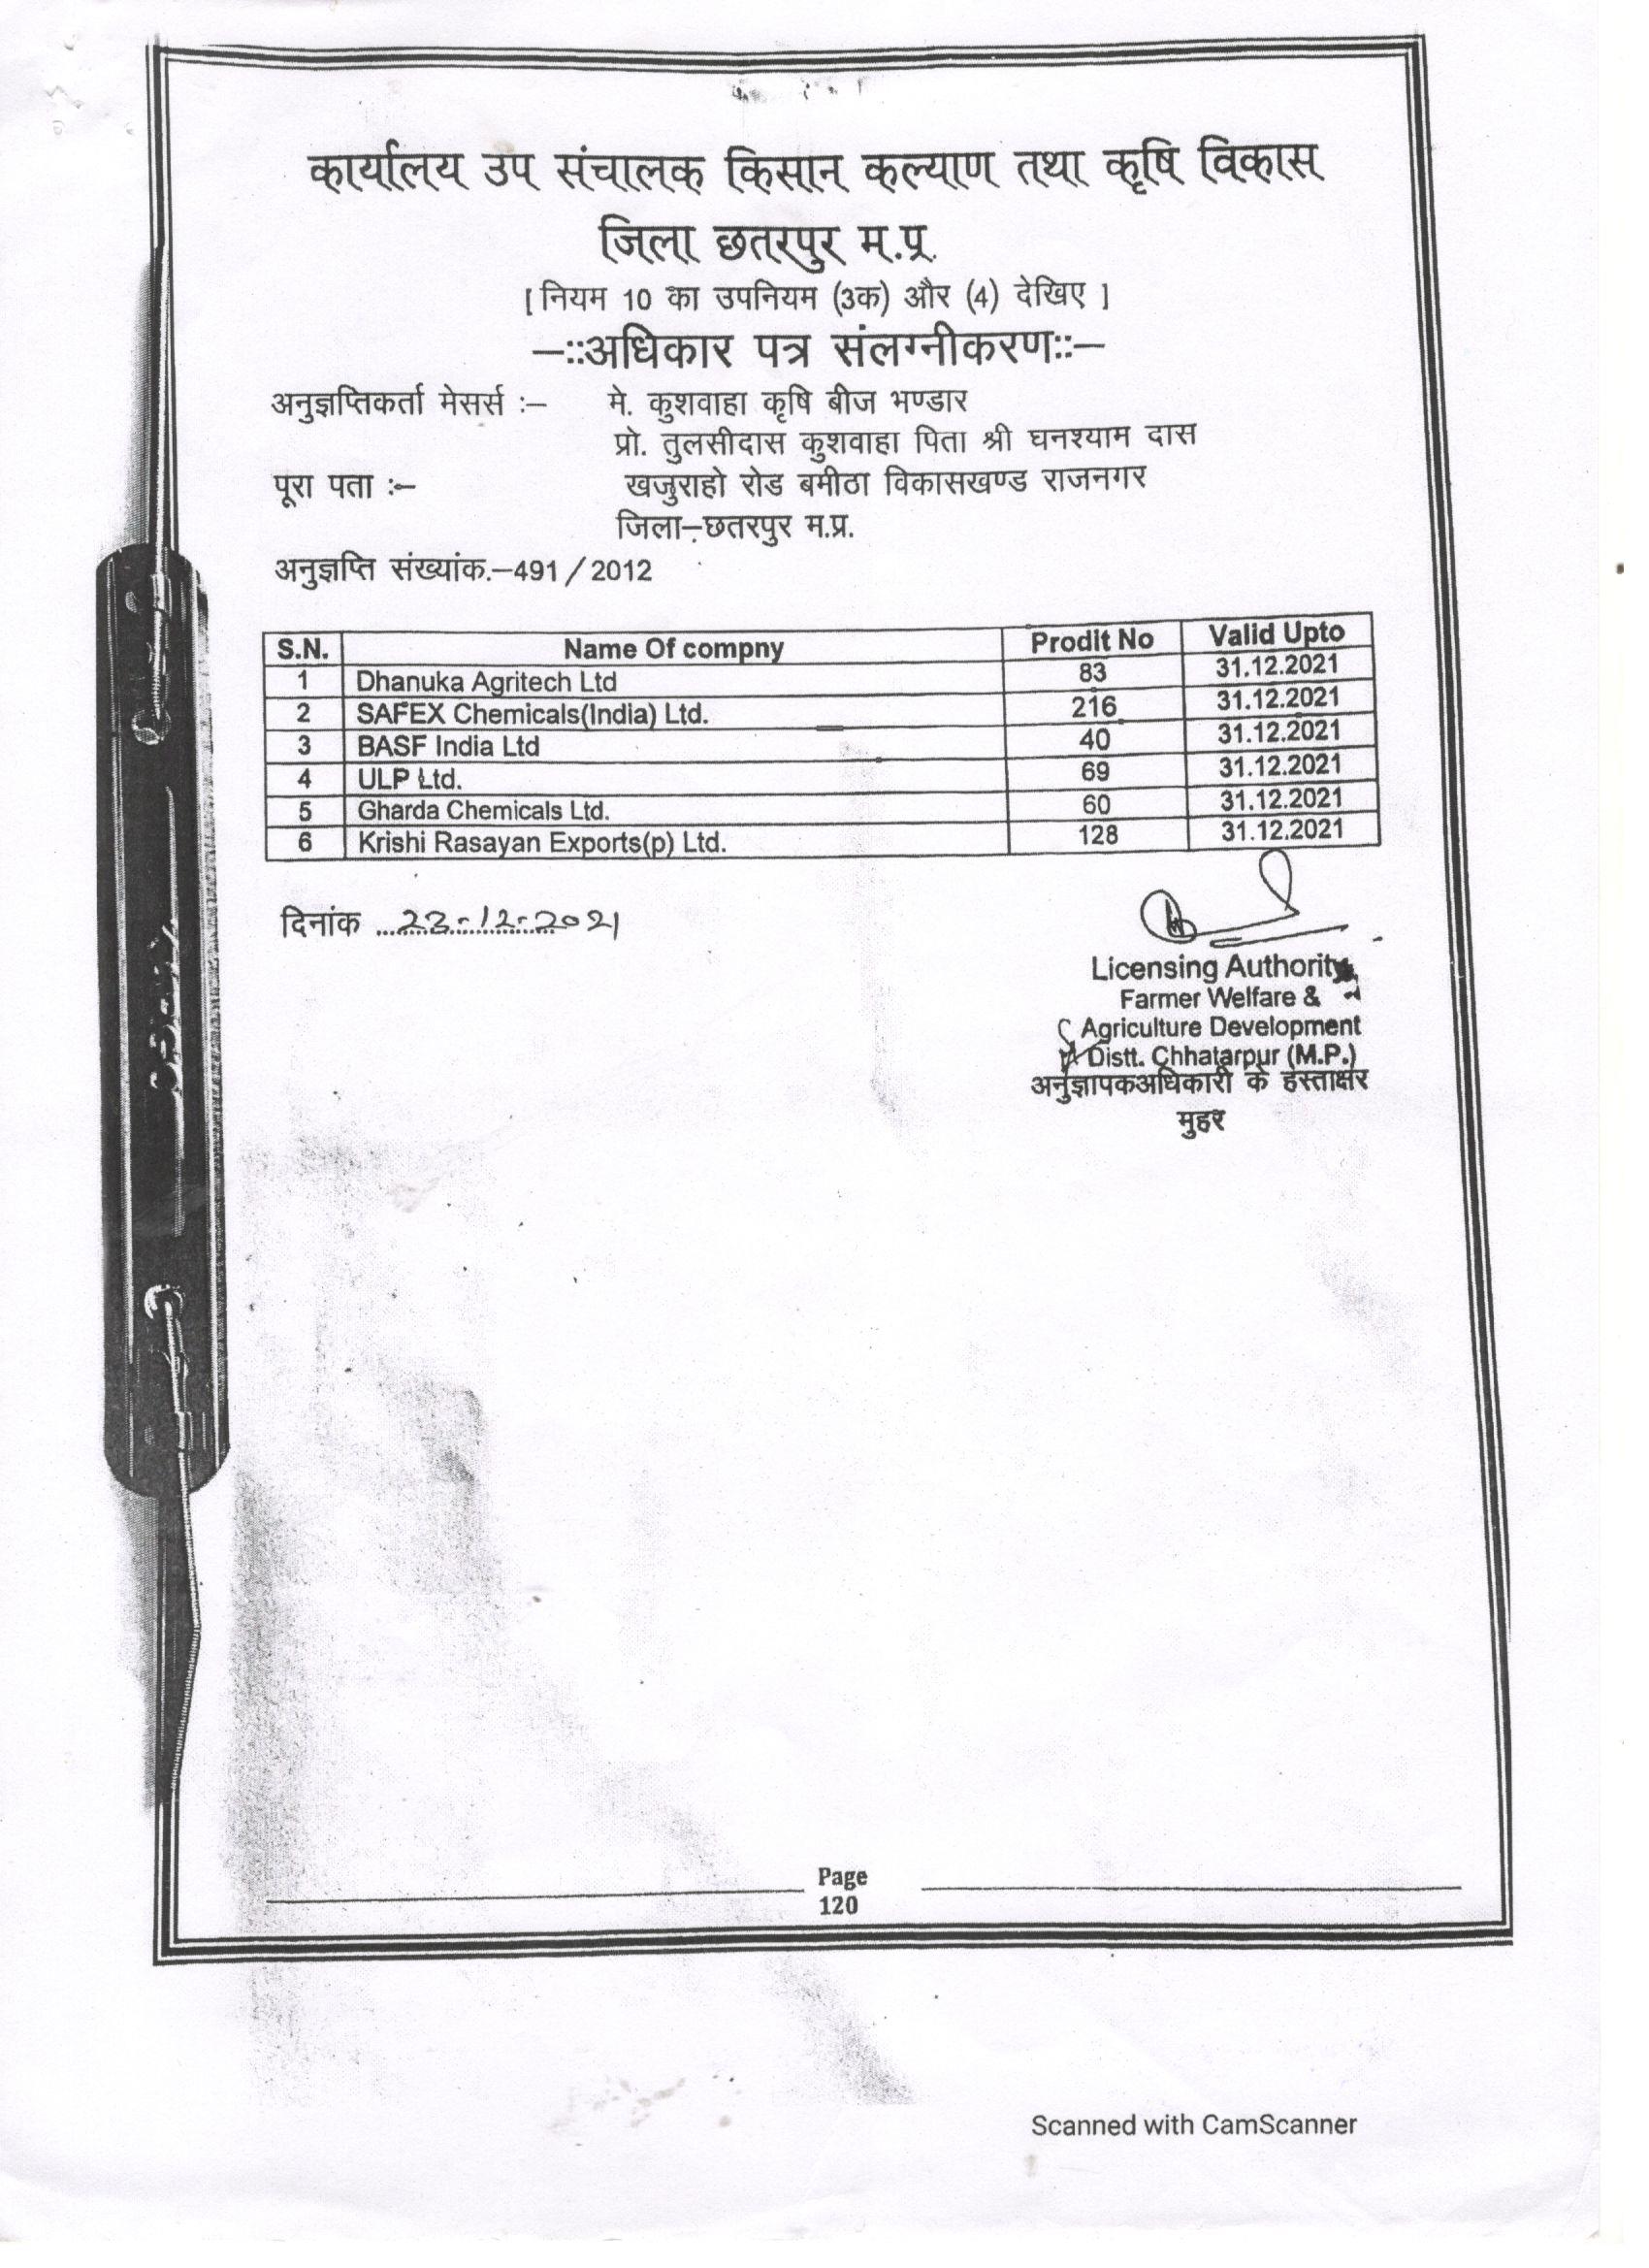 कार्यालय उप संचालक किसान कल्याण तथा कृषि विकास
जिला छतरपुर म.प्र.
[ नियम 10 का उपनियम (3क) और (4) देखिए ]
–::अधिकार पत्र संलग्नीकरण::–
अनुज्ञप्तिकर्ता मेसर्स :– मे. कुशवाहा कृषि बीज भण्डार
प्रो. तुलसीदास कुशवाहा पिता श्री घनश्याम दास
पूरा पता :– खजुराहो रोड बमीठा विकासखण्ड राजनगर
जिला–छतरपुर म.प्र.
अनुज्ञप्ति संख्यांक.–491/2012
S.N. Name Of compny Prodit No Valid Upto
1 Dhanuka Agritech Ltd 83 31.12.2021
2 SAFEX Chemicals(India) Ltd. 216 31.12.2021
3 BASF India Ltd 40 31.12.2021
4 ULP Ltd. 69 31.12.2021
5 Gharda Chemicals Ltd. 60 31.12.2021
6 Krishi Rasayan Exports(p) Ltd. 128 31.12.2021
दिनांक ...23-12-2021
Licensing Authority
Farmer Welfare &
Agriculture Development
Distt. Chhatarpur (M.P.)
अनुज्ञापकअधिकारी के हस्ताक्षर
मुहर
Page
120
Scanned with CamScanner